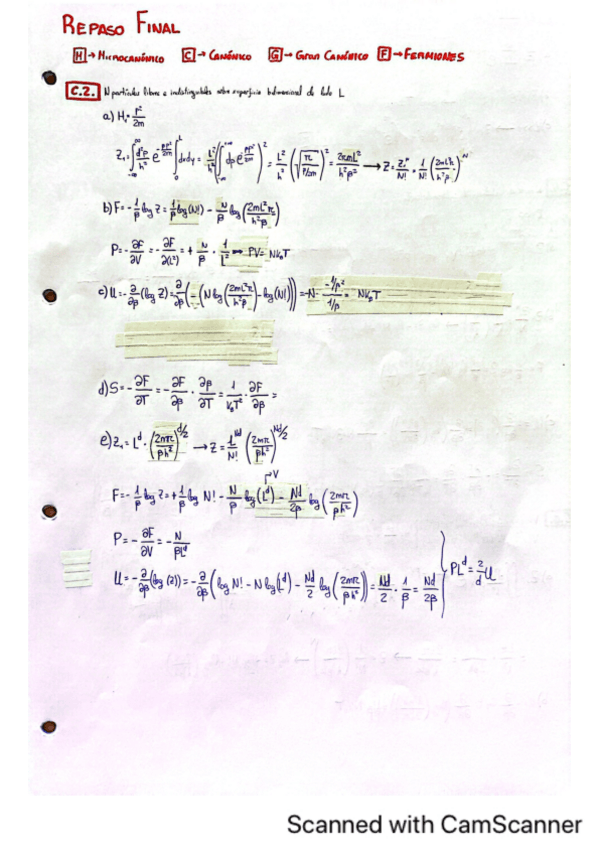 REPASO FINAL
H → MICROCANÓNICO C → CANÓNICO G → GRAN CANÓNICO F → FERMIONES
C.2. N partículas libres e indistinguibles sobre superficie bidimensional de lado L
a) H = p²/2m
Z₁ = ∫_{-∞}^{∞} d²p/h² e^{-βp²/2m} ∫₀^L dxdy = L²/h² (∫_{-∞}^{+∞} dp e^{-βp²/2m})² = L²/h² (√(π/(β/2m)))² = 2πmL²/h²β → Z = Z₁^N/N! = 1/N! (2mL²π/h²β)^N
b) F = -1/β log Z = 1/β log(N!) - N/β log(2mL²π/h²β)
P = -∂F/∂V = -∂F/∂(L²) = + N/β · 1/L² ⇒ PV = Nk_BT
c) U = -∂/∂β (log Z) = ∂/∂β (-(N log(2mL²π/h²β) - log(N!))) = -N · (-1/β²)/(1/β) = Nk_BT
d) S = -∂F/∂T = -∂F/∂β · ∂β/∂T = 1/k_BT² · ∂F/∂β =
e) Z₁ = L^d · (2mπ/βh²)^{d/2} → Z = L^{Nd}/N! (2mπ/βh²)^{Nd/2}
V
F = -1/β log Z = + 1/β log N! - N/β log(L^d) - Nd/2β log(2mπ/βh²)
P = -∂F/∂V = -N/βL^d
U = -∂/∂β (log(Z)) = -∂/∂β (log N! - N log(L^d) - Nd/2 log(2mπ/βh²)) = Nd/2 · 1/β = Nd/2β
PL^d = 2/d U
Scanned with CamScanner